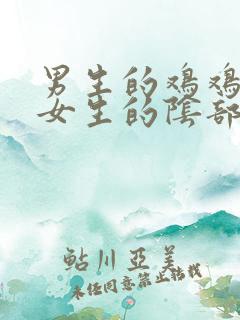 男生的鸡鸡
女生的陰部
鲇川亚美
未经同意禁止转载